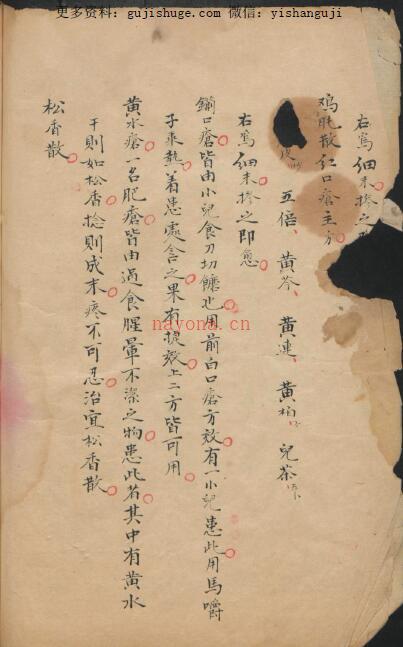 更多资料：gujishuge.com 微信：yishanguji
右为细末掺之
鸡肫散红口瘡主方
皮 五倍、黄芩、黄連、黄柏 兒茶
右為细末掺之即愈
鎖口瘡皆由小兒食刀切饝也用前白口瘡方效有一小兒患此用馬嚼
子乘熱着患處含之果有提效上二方皆可用
黄水瘡一名肥瘡皆由過食腥暈不潔之物患此者其中有黄水
干則如松香捻則成末疼不可忍治宜松香散
松香散
nayona.cn